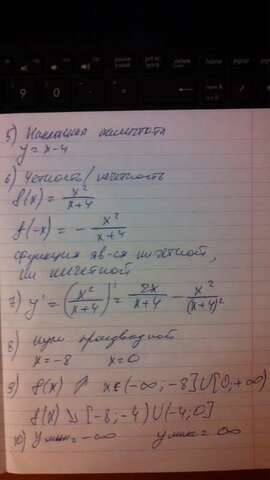 5) Наклонная асимптота
y = x - 4
6) Четность/нечетность
f(x) = x²/(x+4)
f(-x) = - x²/(x+4)
функция яв-ся ни четной,
ни нечетной
7) y' = (x²/(x+4))' = 2x/(x+4) - x²/(x+4)²
8) нули производной
x = -8 x = 0
9) f(x) ↗ x∈(-∞; -8]∪[0; +∞)
f(x) ↘ [-8; -4)∪(-4; 0]
10) yмин = -∞ yмак = ∞
9 0 - =